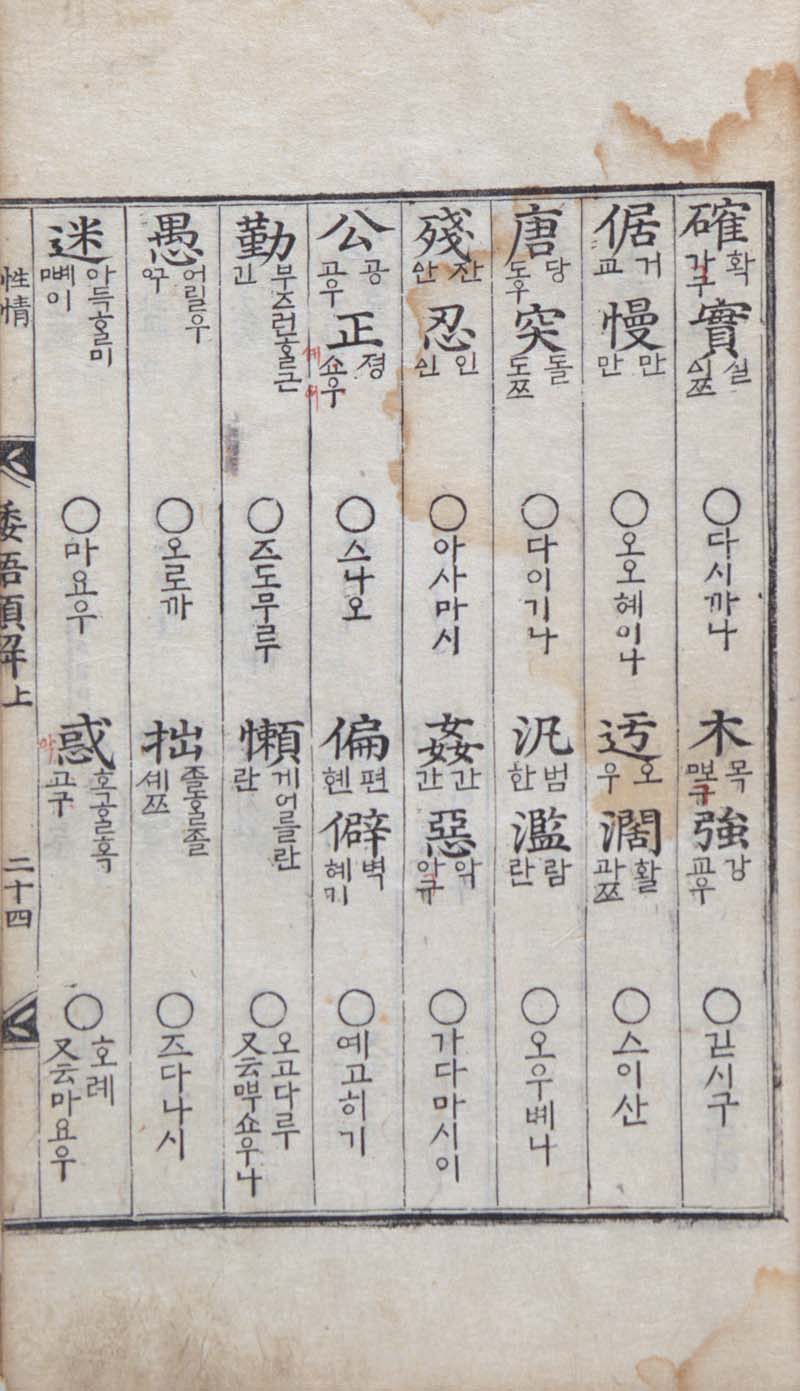 確 확 가구 實 실 시쯔 ○다시까나 木 목 뽀구 強 강 교우 ○긷시구
倨 거 교 慢 만 만 ○오오헤이나 迃 오 우 濶 활 과쯔 ○스이산
唐 당 도우 突 돌 도쯔 ○다이기나 汎 범 한 濫 람 란 ○오우볘나
殘 잔 안 忍 인 신 ○아사마시 姦 간 간 惡 악 아규 ○가다마시이
公 공 고우 正 졍 쇼우 ○스나오 偏 편 현 僻 벽 혜기 ○예고히기
勤 부즈런홀근 긴 ○즈도무루 懶 게어를란 란 ○오고다루 又云뿌쇼우나
愚 어릴우 ○오로까 拙 졸홀졸 셰쯔 ○즈다나시
迷 아득홀미 ○마요우 惑 호고홀혹 고구 ○호례 又云마요우
性情
倭語類解上
二十四